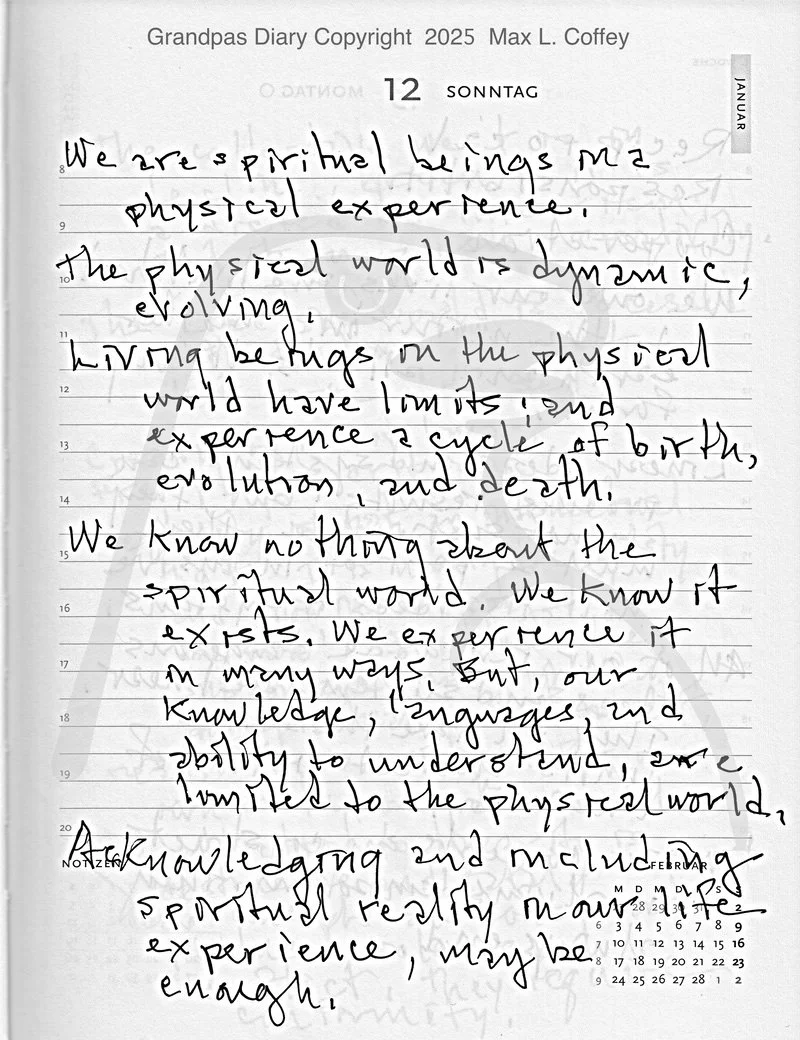 Grandpas Diary Copyright 2025 Max L. Coffey
12 SONNTAG
JANUAR
We are spiritual beings in a
physical experience.
The physical world is dynamic,
evolving.
Living beings in the physical
world have limits; and
experience a cycle of birth,
evolution, and death.
We know nothing about the
spiritual world. We know it
exists. We experience it
in many ways. But, our
knowledge, languages, and
ability to understand, are
limited to the physical world.
Acknowledging and including
spiritual reality in our life
experience, may be
enough.
8
9
10
11
12
13
14
15
16
17
18
19
20
NOTIZEN
FEBRUAR
M D M D S S
28 29 2
6 3 4 5 6 7 8 9
7 10 11 12 13 14 15 16
8 17 18 19 20 21 22 23
9 24 25 26 27 28 1 2